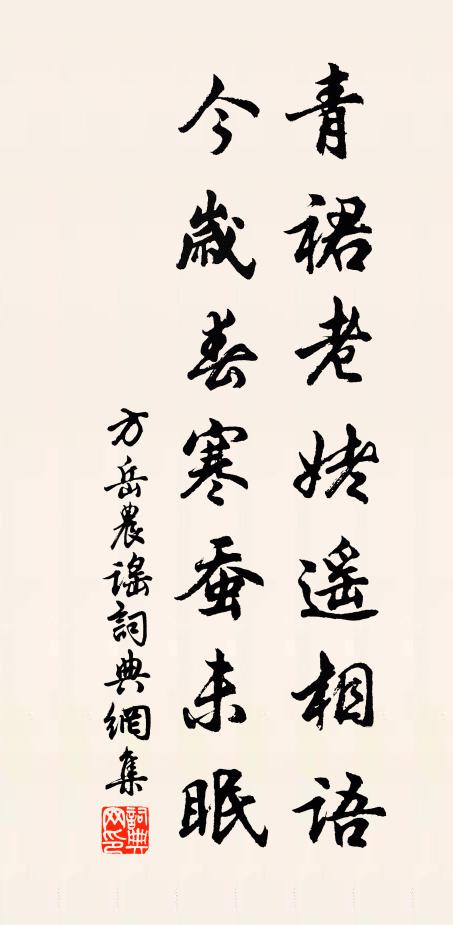 青裙老姥遥相语
今歲春寒蚕未眠
方岳農谣詞典網集
詞典网印